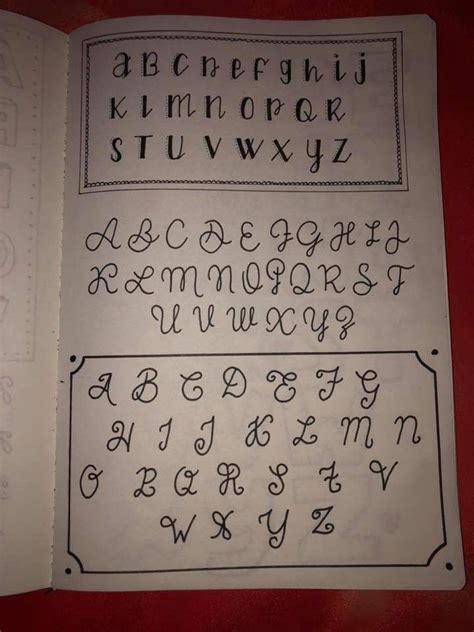 a B C D e f g h i j
K l M N O P Q R
S T U V W X y Z
A B C D E F G H I J
K L M N O P Q R S T
U V W X Y Z
A B C D E F G
H I J K L M N
O P Q R S T V
W X Y Z